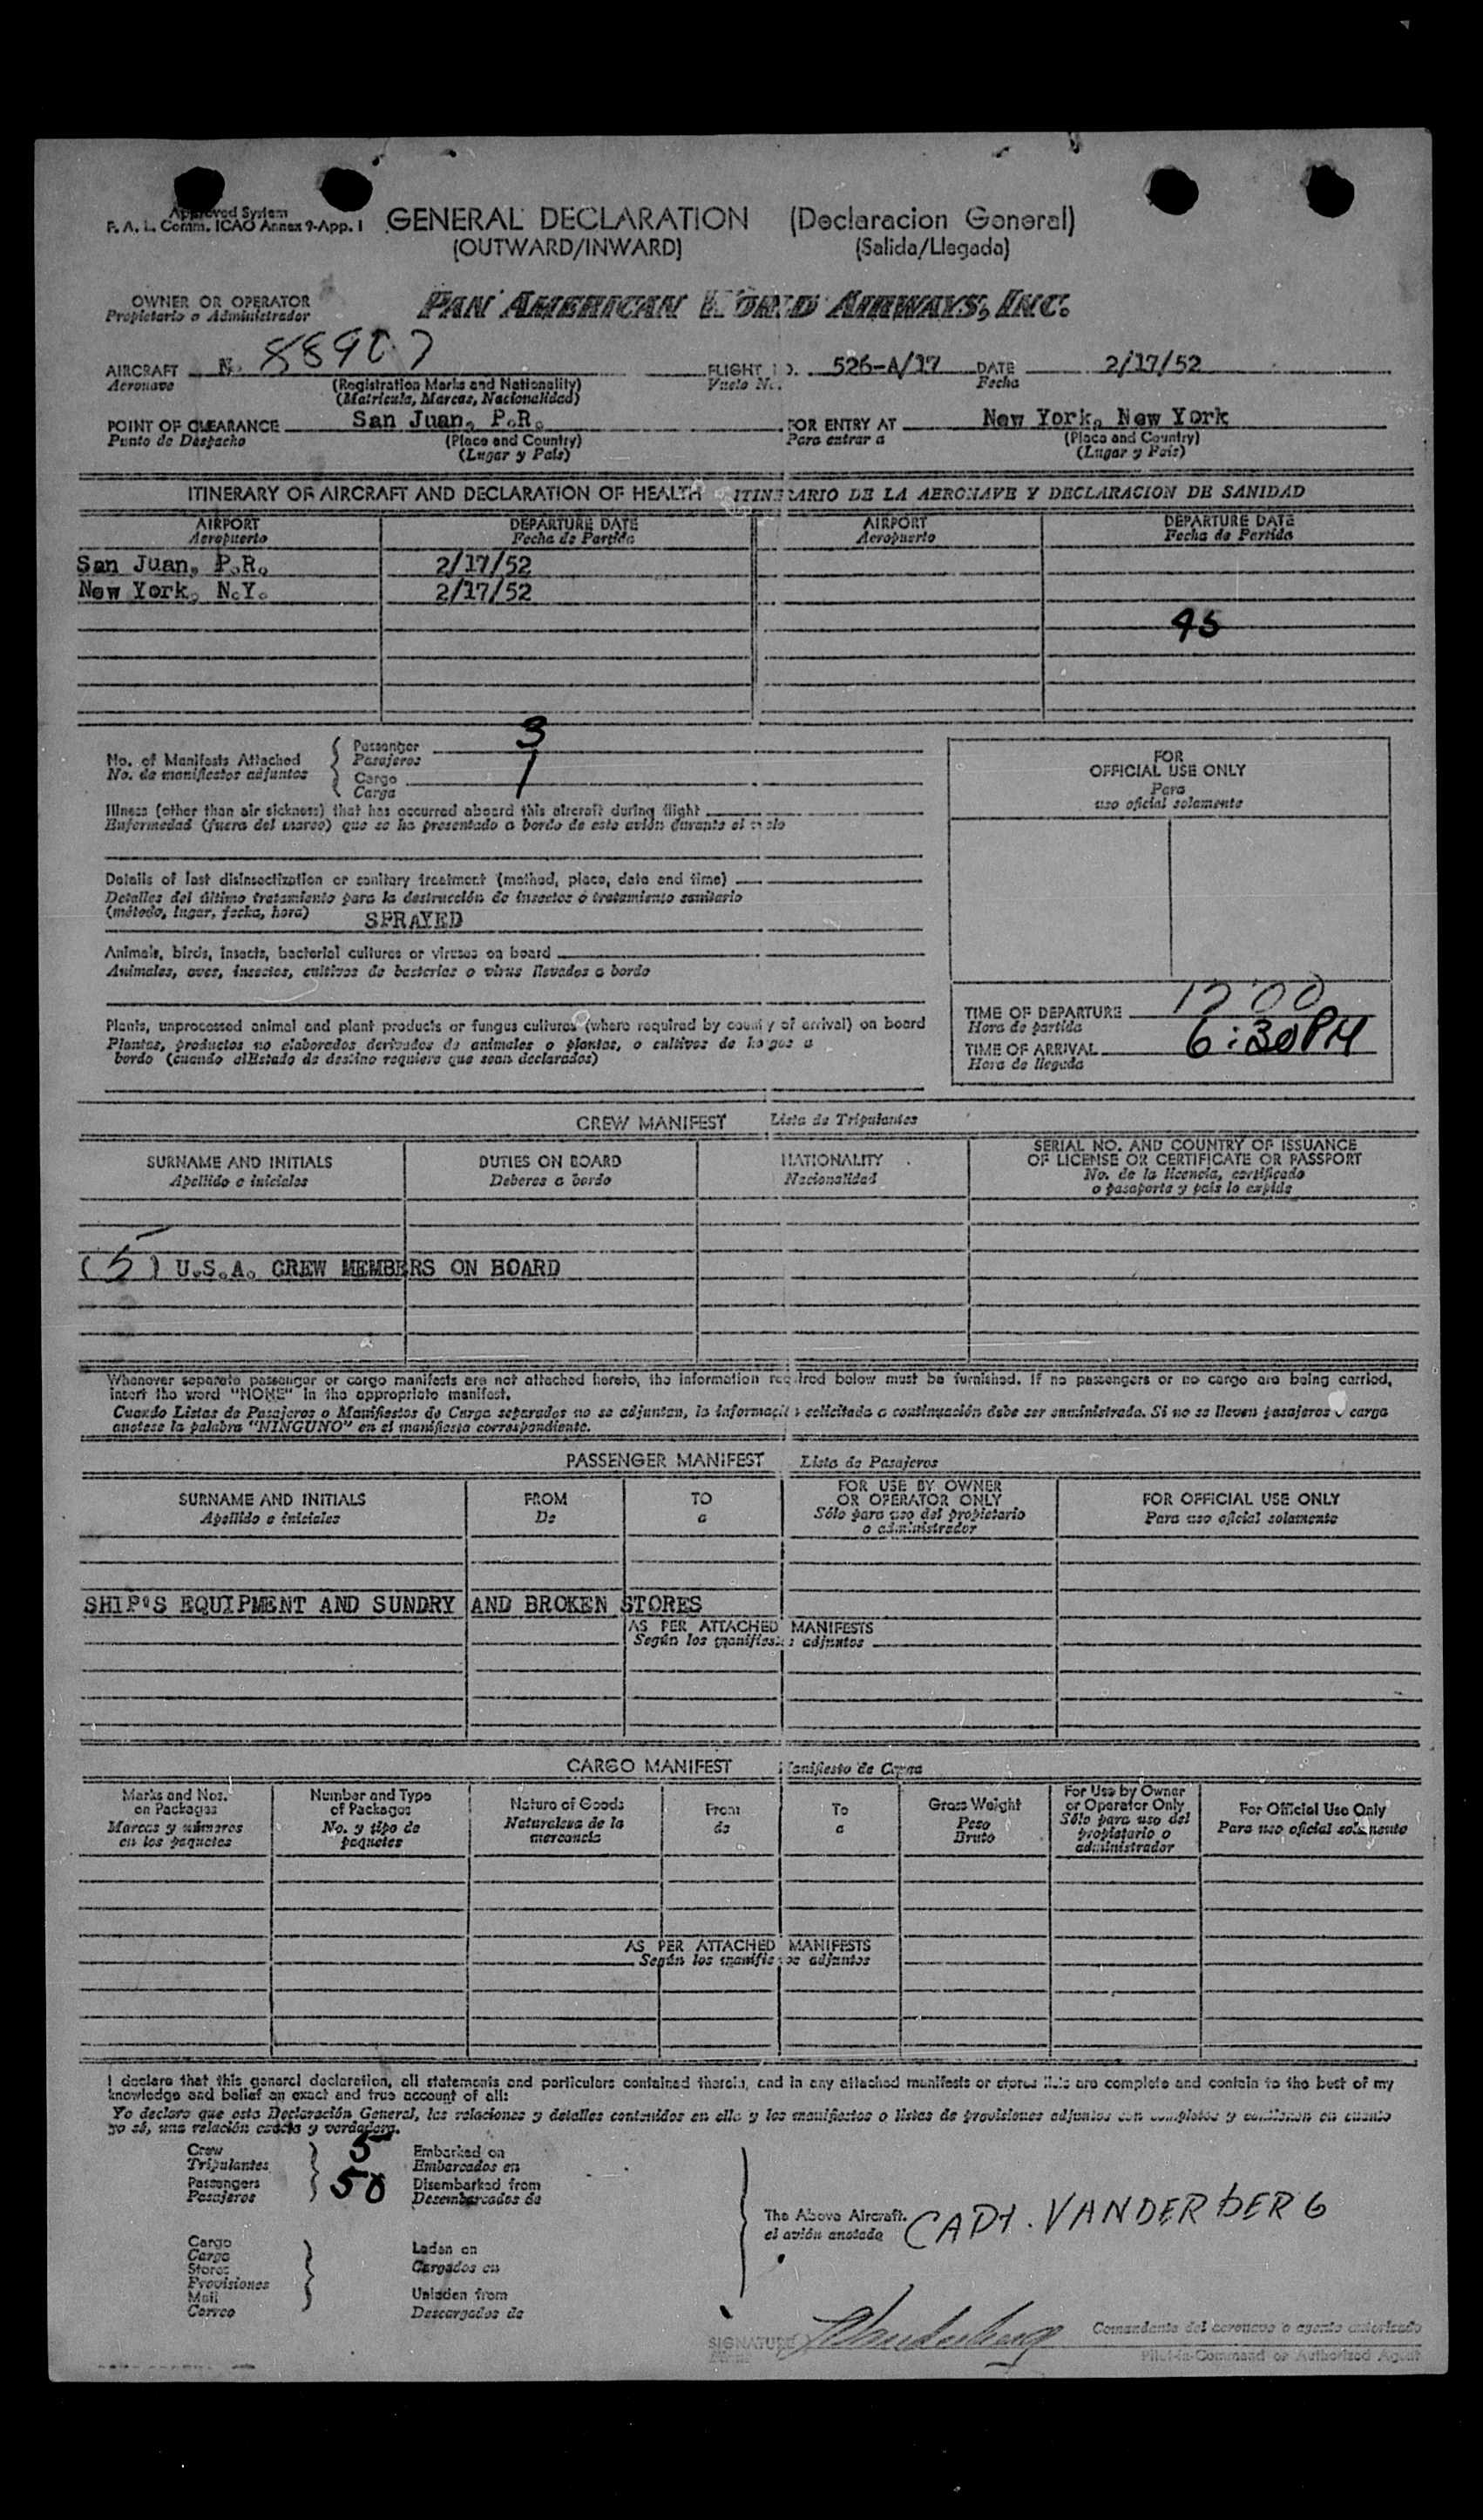 Approved System
F. A. L. Comm. ICAO Annex 9-App. 1
GENERAL DECLARATION (Declaracion General)
(OUTWARD/INWARD) (Salida/Llegada)
OWNER OR OPERATOR
Propietario o Administrador
PAN AMERICAN WORLD AIRWAYS, INC.
AIRCRAFT N. 88907 FLIGHT NO. 526-A/17 DATE 2/17/52
Aeronave (Registration Marks and Nationality) Vuelo No. Fecha
(Matricula, Marcas, Nacionalidad)
POINT OF CLEARANCE San Juan, P.R. FOR ENTRY AT New York, New York
Punto de Despacho (Place and Country) Para entrar a (Place and Country)
(Lugar y País) (Lugar y País)
ITINERARY OF AIRCRAFT AND DECLARATION OF HEALTH ITINERARIO DE LA AERONAVE Y DECLARACION DE SANIDAD
AIRPORT DEPARTURE DATE AIRPORT DEPARTURE DATE
Aeropuerto Fecha de Partida Aeropuerto Fecha de Partida
San Juan, P.R. 2/17/52
New York, N.Y. 2/17/52
45
No. of Manifests Attached
No. de manifiestos adjuntos
Passenger 3
Pasajeros
Cargo 1
Carga
Illness (other than air sickness) that has occurred aboard this aircraft during flight
Enfermedad (fuera del mareo) que se ha presentado a bordo de este avión durante el vuelo
Details of last disinsectization or sanitary treatment (method, place, date and time)
Detalles del último tratamiento para la destrucción de insectos ó tratamiento sanitario
(método, lugar, fecha, hora) SPRAYED
Animals, birds, insects, bacterial cultures or viruses on board
Animales, aves, insectos, cultivos de bacterias o virus llevados a bordo
Plants, unprocessed animal and plant products or fungus cultures (where required by country of arrival) on board
Plantas, productos no elaborados derivados de animales o plantas, o cultivos de hongos a
bordo (cuando elEstado de destino requiere que sean declarados)
FOR
OFFICIAL USE ONLY
Para
uso oficial solamente
TIME OF DEPARTURE 12 00
Hora de partida
TIME OF ARRIVAL 6:30PM
Hora de llegada
CREW MANIFEST Lista de Tripulantes
SURNAME AND INITIALS DUTIES ON BOARD NATIONALITY SERIAL NO. AND COUNTRY OF ISSUANCE
OF LICENSE OR CERTIFICATE OR PASSPORT
Apellido e iniciales Deberes a bordo Nacionalidad No. de la licencia, certificado
o pasaporte y país lo expide
(5) U.S.A. CREW MEMBERS ON BOARD
Whenever separate passenger or cargo manifests are not attached hereto, the information required below must be furnished. If no passengers or no cargo are being carried,
insert the word "NONE" in the appropriate manifest.
Cuando Listas de Pasajeros o Manifiestos de Carga separados no se adjuntan, la información solicitada a continuación debe ser suministrada. Si no se lleven pasajeros o carga
anotese la palabra "NINGUNO" en el manifiesto correspondiente.
PASSENGER MANIFEST Lista de Pasajeros
SURNAME AND INITIALS FROM TO FOR USE BY OWNER
OR OPERATOR ONLY FOR OFFICIAL USE ONLY
Apellido e iniciales De a Sólo para uso del propietario
o administrador Para uso oficial solamente
SHIP'S EQUIPMENT AND SUNDRY AND BROKEN STORES
AS PER ATTACHED MANIFESTS
Según los manifiestos adjuntos
CARGO MANIFEST Manifiesto de Carga
Marks and Nos.
on Packages
Marcas y números
en los paquetes
Number and Type
of Packages
No. y tipo de
paquetes
Nature of Goods
Naturaleza de la
mercancía
From
de
To
a
Gross Weight
Peso
Bruto
For Use by Owner
or Operator Only
Sólo para uso del
propietario o
administrador
For Official Use Only
Para uso oficial solamente
AS PER ATTACHED MANIFESTS
Según los manifiestos adjuntos
I declare that this general declaration, all statements and particulars contained therein, and in any attached manifests or stores lists are complete and contain to the best of my
knowledge and belief an exact and true account of all:
Yo declaro que esta Declaración General, las relaciones y detalles contenidos en ella y los manifiestos o listas de provisiones adjuntos son completos y contienen en cuanto
yo sé, una relación exacta y verdadera.
Crew 5 Embarked on
Tripulantes Embarcados en
Passengers 50 Disembarked from
Pasajeros Desembarcados de
The Above Aircraft.
el avión anotado
CAPT. VANDERBERG
Cargo
Carga
Stores
Provisiones
Mail
Correo
Laden on
Cargados en
Unladen from
Descargados de
SIGNATURE Vanderberg
Comandante del aeronave o agente autorizado
Pilot-in-Command or Authorized Agent